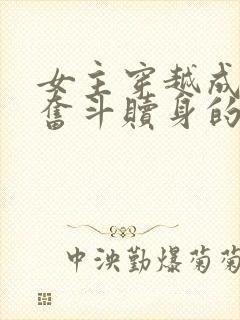 女主穿越成
奮斗贖身的
中泱勤爆菊菊